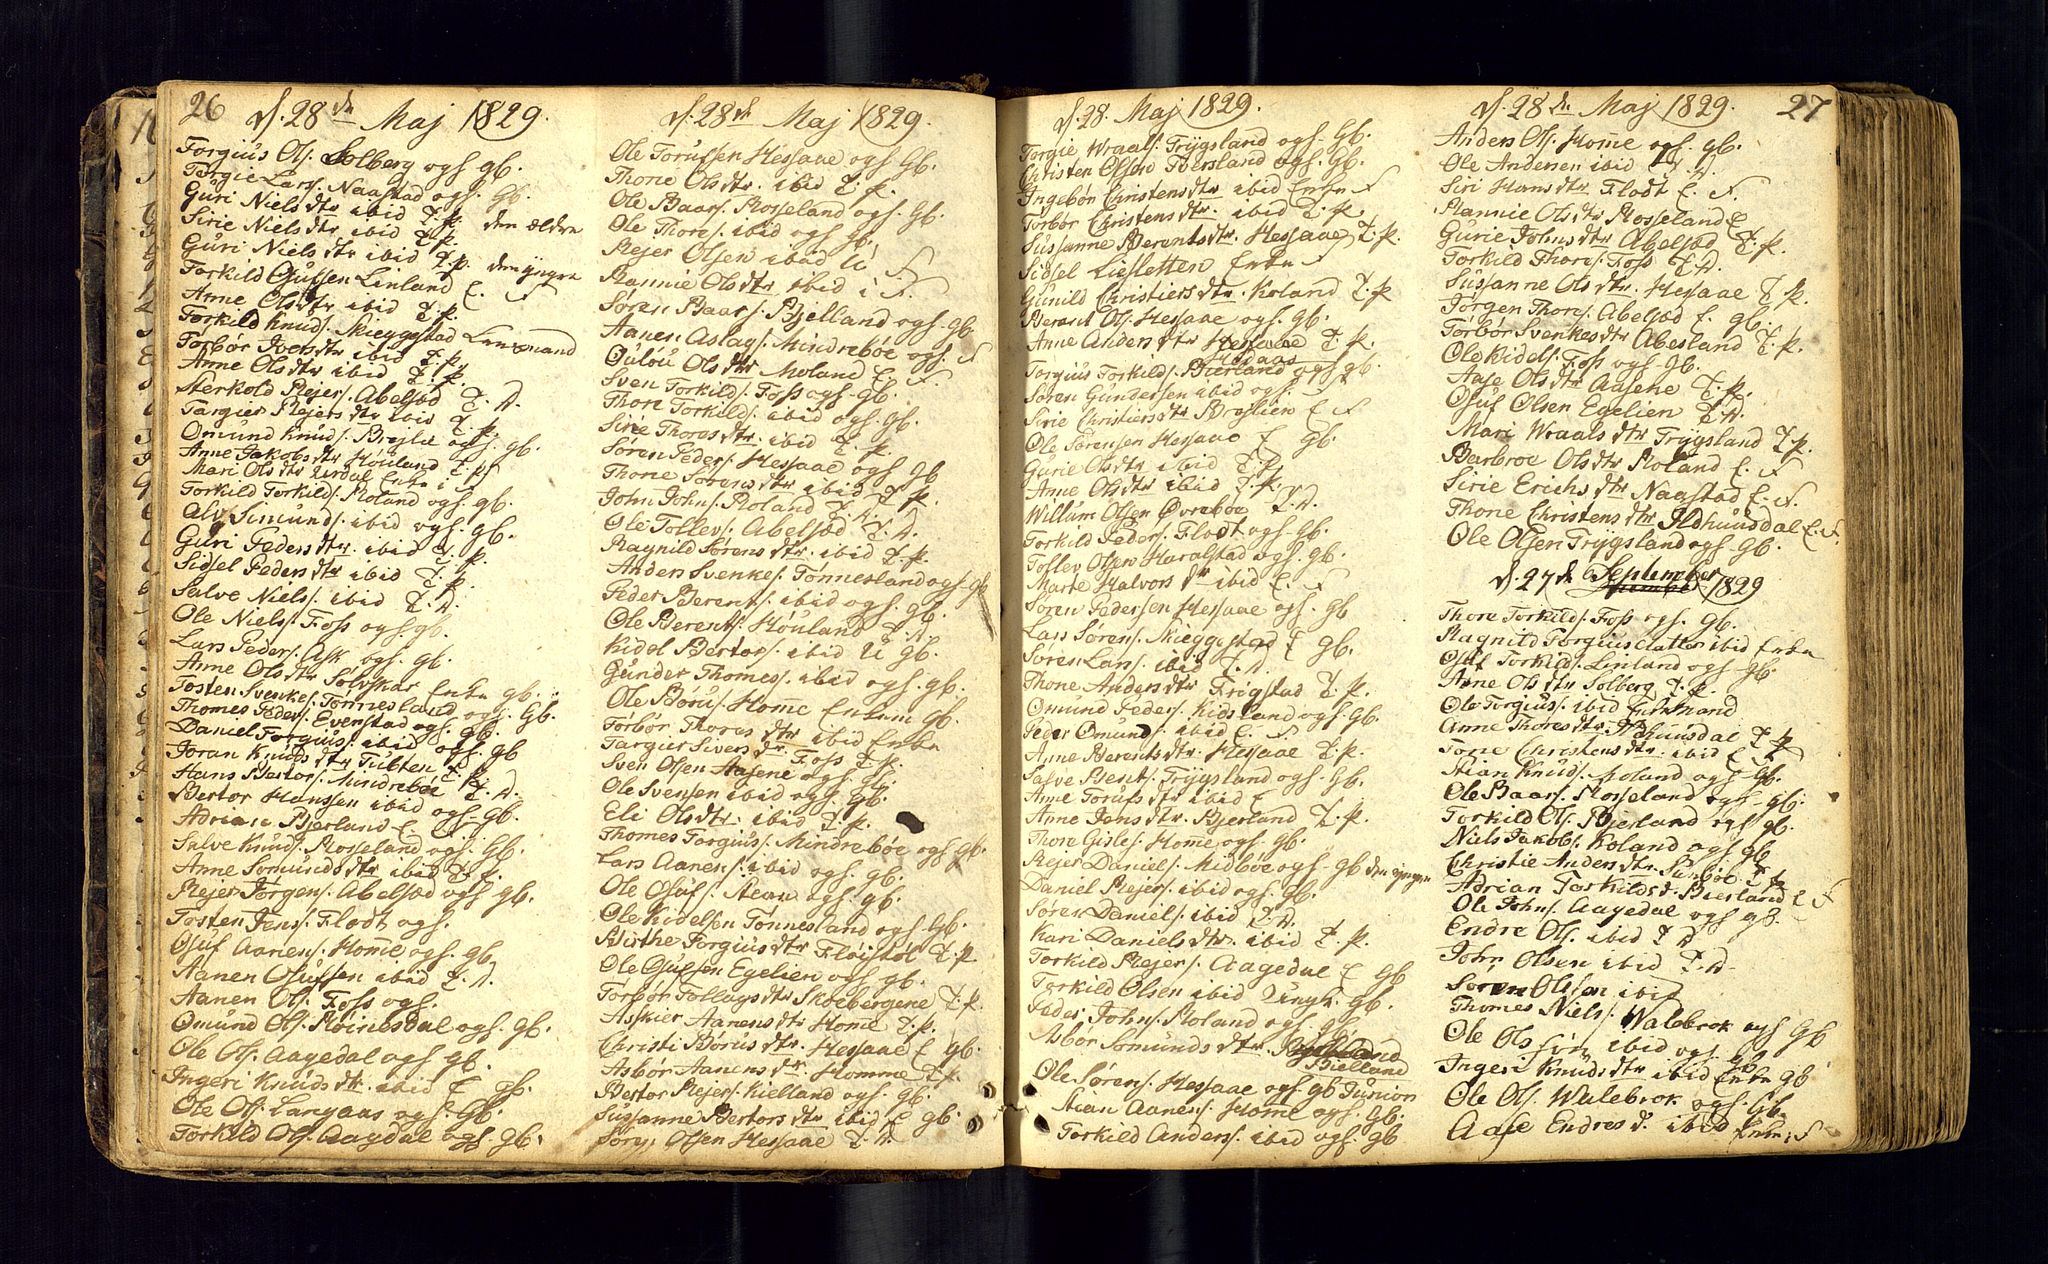 26
d. 28de Maj 1829.
Torgius Ols. Solberg og h. gb.
Torgie Lars. Naastad og h. Gb.
Guri Niels dtr ibid T. p. den ældre
Sirie Niels dtr ibid T. p.
Guri Niels dtr ibid T. p. den yngre
Torkild Osufsen Linland E. F
Anne Ols dtr ibid T. p.
Torkild Knuds. Skieggestad Lensmand
Torbor Ivers dtr ibid T. p.
Anne Ols dtr ibid T. p.
Herkold Rejers. Abelsød T. D.
Targier Rejers dtr ibid T. p.
Omund Knuds. Breilie og h. gb.
Anne Jakobs dtr Houland T. p.
Mari Ols dtr Urdal Enke i F
Torkild Torkilds. Roland og h. gb.
Alv Simunds. ibid og h. gb.
Guri Peders dtr. ibid T. p.
Sidsel Peders dtr ibid T. p.
Salve Niels. ibid T. D.
Ole Niels. Foss og h. gb.
Lars Peders. Ask og h. gb.
Anne Ols dtr Solvskar Enke gb.
Tosten Svenkes. Tønnesland og h. Gb.
Thomes Peders. Evenstad og h. gb.
Daniel Torgius. ibid og h. gb
Joran Knuds dtr Tulten T. p.
Hans Bertors. Mindrebøe T. D.
Bertor Hanssen ibid og h. gb.
Adrian Bjerland E.
Salve Knuds. Rosseland og h. Gb.
Anne Somunds dtr ibid T. p.
Rejer Jørgens. Abelsød og h. gb.
Tosten Jens. Flodt og h.
Osuf Aanens. Home og h. gb.
Aanen Osufsen ibid T. D.
Aanen Ols. Foss og h.
Omund Ols. Røinesdal og h. gb.
Ole Ols. Aagedal og h. gb.
Ingeri Knuds dtr. ibid E gb.
Ole Ols. Langaas og h. Gb.
Torkild Ols. Aagdal og h. gb.
d. 28de Maj 1829.
Ole Torufsen Hessaae og h. Gb.
Thone Ols dtr. ibid T. p.
Ole Baars. Rosseland og h. Gb.
Ole Thores. ibid og h. gb.
Rejer Olsen ibid U F
Rannie Ols dtr ibid i F.
Soren Baars. Bjelland og h. gb.
Aanen Aslags. Mindrebøe og h. F
Oulou Ols dtr Moland E F.
Sven Torkilds. Foss og h. Gb.
Thore Torkilds. ibid og h. gb.
Sirie Thores dtr. ibid T. p.
Søren Peders. Hessaae og h. gb
Thone Sørens dtr. ibid T. p.
John Johns. Roland T. D.
Ole Tollevs. Abelsød T. D.
Ragnild Sørens dtr. ibid T. p.
Anders Svenkes. Tonnesland og h. gb
Peder Berents. ibid og h. gb.
Ole Berents. Houland T. D.
Kidel Bertors. ibid U gb.
Gunder Thomes. ibid og h. gb.
Ole Børus. Home Enkem Gb
Torbor Thores dtr ibid Enke
Targier Sivers dr. Foss T. p.
Sven Olsen Aasene og h. gb.
Ole Svensen ibid og h. Gb.
Eli Ols dtr. ibid T. p.
Thomes Torgius. Mindrebøe og h. gb.
Lars Aanens. ibid og h. gb.
Ole Osufs. Stean og h. gb.
Ole Kidelsen Tonnesland og h. Gb.
Birthe Torgius dtr Fløistol T. p
Ole Osufsen Egelien og h. gb.
Torbor Tollags dtr Skoebergene T. p.
Asskier Aanens dtr Home T. p.
Christi Børus dtr. Hessaae E gb.
Asbør Aanens dtr. Homme T. p.
Bertor Rejers. Kielland og h. gb.
Sussanne Bertors dtr ibid E gb.
Jorg. Olsen Hessaae T. D
d. 28. Maj 1829.
Torgie Wraals. Trygsland og h. Gb.
Christen Olsen Toersland og h. Gb.
Ingebor Christens dtr ibid Enke F
Torbor Christens dtr. ibid T. p.
Sussanne Berents dtr. Hessaae T. p.
Sidsel Liesletten Enke F
Gunild Christiers dtr. Koland T. p
Berent Ols. Hessaae og h. gb.
Anne Anders dtr Hessaae T. p.
Hodaas
Torgius Torkilds. Bierland og h. gb.
Søren Gundersen ibid og h. F
Sirie Christiers dtr Breilien E F
Ole Sørensen Hessaae E Gb.
Gurie Ols dtr ibid T. p.
Anne Ols dtr ibid T. p.
Willum Olsen Øvrebøe T. D.
Torkild Peders. Flodt og h. Gb.
Tollev Olsen Haralstad og h. Gb.
Marte Halvors dr ibid E. F
Soren Pedersen Hessaae og h. Gb
Lars Sørens. Skieggestad E Gb.
Søren Lars. ibid T. D.
Thone Anders dtr Frigstad T. p.
Omund Peders. Kidsland og h. Gb.
Peder Omunds. ibid E. F.
Anne Berents dtr. Hessaae T. p.
Salve Bents. Trygsland og h. Gb.
Anne Torufs dtr ibid E
Anne Jens dtr. Bjerland T. p.
Thore Gisles. Home og h. gb.
Rejer Daniels. Midbøe og h. gb den yngre
Daniel Rejers. ibid og h. gb.
Søren Daniels. ibid T. D.
Kari Daniels dtr. ibid T. p.
Torkild Rejers. Aagedal E Gb
Torkild Olsen ibid Ungk. Gb.
Peder Johns. Roland og h. gb.
Asbor Somunds dtr.
Bielland
Ole Sørens. Hessaae og h. gb Junior
Stian Aanens. Home og h. Gb.
Torkild Anders. ibid og h. gb
d. 28de Maj 1829. 27
Anders Ols. Home og h. gb.
Ole Andersen ibid T. D.
Siri Hans dtr Flodt E. F.
Rannie Ols dtr Rosseland E
Gurie Johns dtr Abelsød T. p.
Torkild Thores. Foss T. D.
Sussanne Ols dtr. Hessaae T. p.
Jørgen Thores. Abelsød E. gb.
Torbør Svenkes dtr Abesland T. p.
Ole Kidels. Foss og h. Gb.
Aase Ols dtr Aasene T. p.
Osuf Olsen Egelien T. D.
Mari Wraals dtr Trygsland T. p.
Barbroe Ols dtr Roland E. F
Sirie Erichs dtr Naastad E. F.
Thone Christens dtr Ildhuusdal E. F.
Ole Olsen Trygsland og h. Gb.
d. 27de September 1829
Thore Torkilds. Foss og h. Gb.
Ragnild Torgiusdatter ibid Enke
Osuf Torkilds. Linland og h. Gb.
Anne Ols dtr Solberg T. p.
Ole Torgius. ibid Enkmand
Anne Thores dtr. Ilhuusdal T. p
Tone Christens dtr. ibid E F
Stian Knuds. Moland og h. Gb.
Ole Baars. Rosseland og h. gb.
Torkild Ols. Bjerland og h. gb.
Niels Jakobs. Koland og h. gb
Christie Anders dtr.
Adrian Torkilds d. Bierland E F
Ole Johns. Aagedal og h. gb.
Endre Ols. ibid T D
John Olsen ibid T. D.
Soren Olsen ibid
Thomes Niels. Walebrok og h Gb
Ole Ols ibid og h. gb
Ingeri Knuds dtr ibid Enke gb
Ole Ols. Walebrok og h. Gb.
Aase Endres d. ibid Enke i F